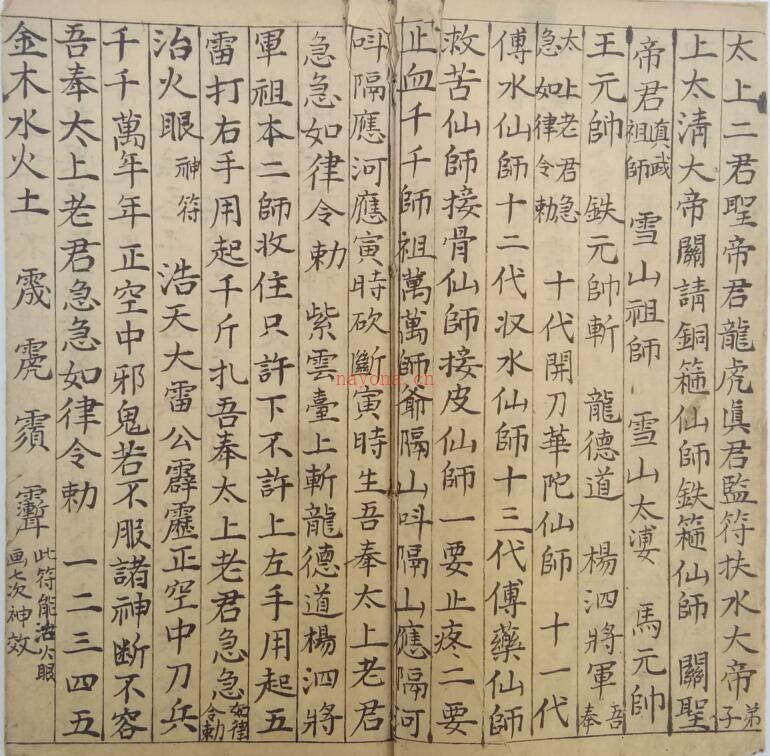 太上二君聖帝君龍虎真君監符扶水大帝弟子
上太清大帝關請銅箍仙師鉄箍仙師 關聖
帝君真武祖師 雪山祖師 雪山太 馬元帥
王元帥 鉄元帥斬 龍德道 楊泗將軍吾奉
太上老君急急如律令勅 十代開刀華陀仙師 十一代
傅水仙師十二代収水仙師十三代傅藥仙師
救苦仙師接骨仙師接皮仙師一要止疼二要
止血千千師祖萬萬師爺隔山呌隔山應隔河
呌隔應河應寅時砍斷寅時生吾奉太上老君
急急如律令勅 紫雲臺上斬龍德道楊泗將
軍祖本二師收住只許下不許上左手用起五
雷打右手用起千斤扎吾奉太上老君急急如律令勅
治火眼神符 浩天大雷公霹靂正空中刀兵
千千萬年年正空中邪鬼若不服諸神断不容
吾奉太上老君急急如律令勅 一二三四五
金木水火土 此符能治火眼画七次神效
nayona.cn